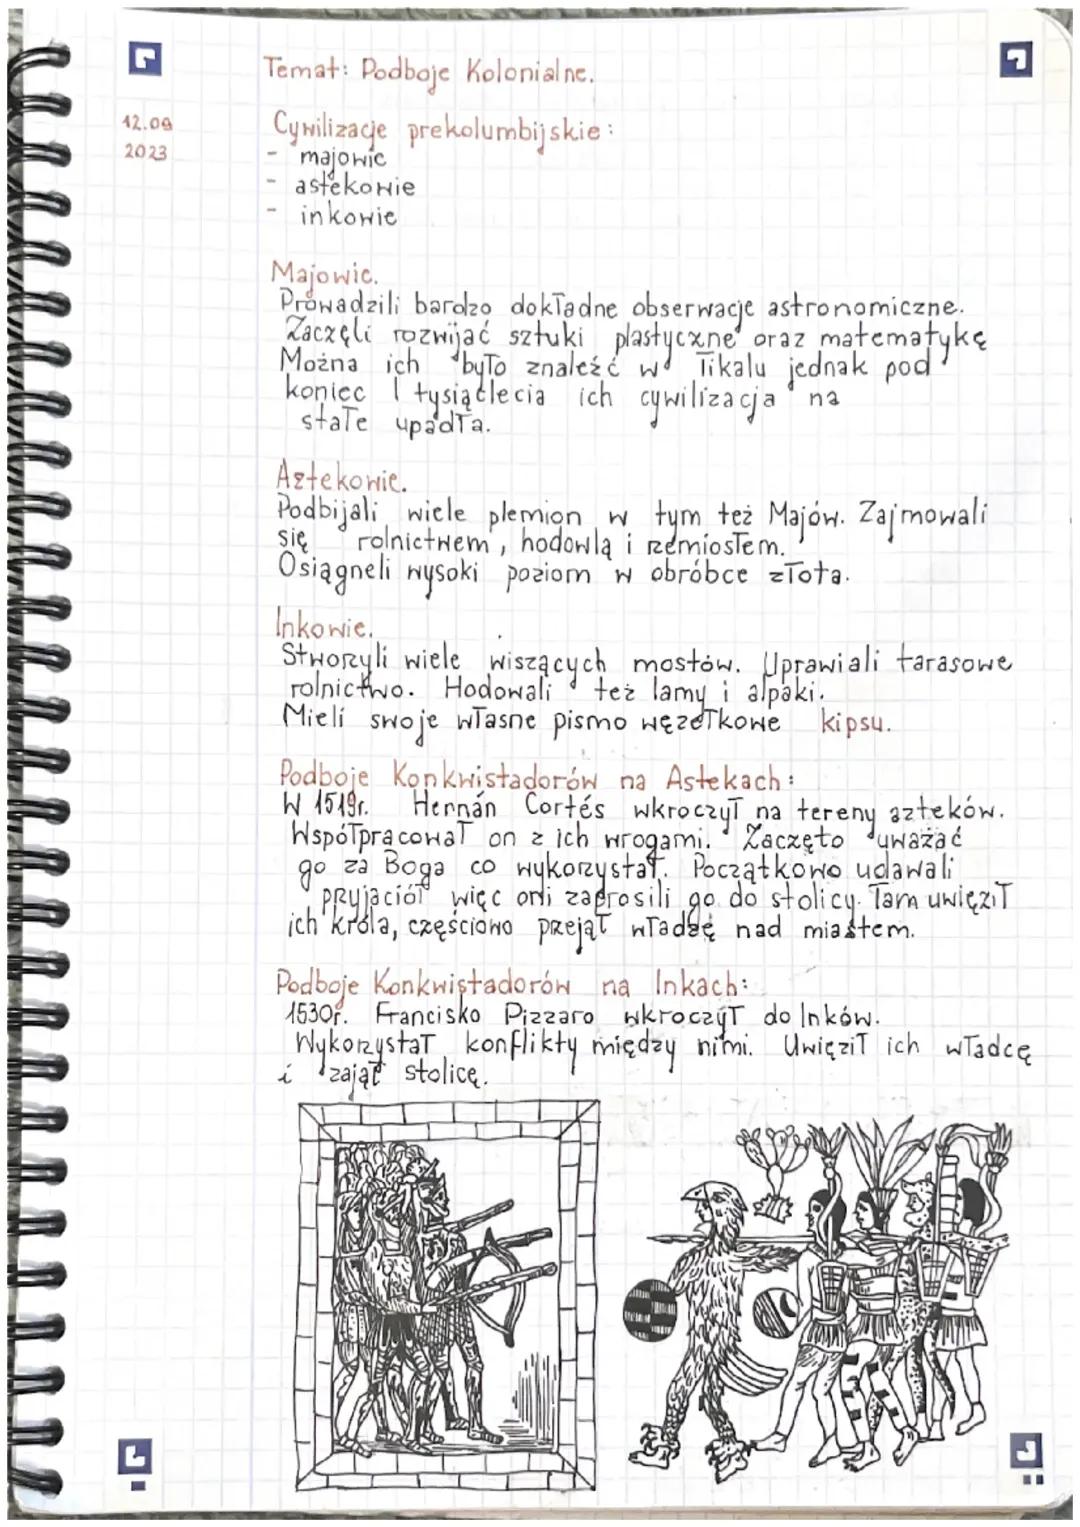 Temat: Podboje Kolonialne.
12.09
2023
Cywilizacje prekolumbijskie:
- majowie
- astekowie
- inkowie
Majowie.
Prowadzili bardzo dokładne obserwacje astronomiczne.
Zaczęli rozwijać sztuki plastyczne oraz matematykę
Można ich było znaleźć w Tikalu jednak pod
koniec I tysiąclecia ich cywilizacja na
stałe upadła.
Aztekowie.
Podbijali wiele plemion w tym też Majów. Zajmowali
się rolnictwem, hodowlą i rzemiosłem.
Osiągneli wysoki poziom w obróbce złota.
Inkowie.
Stworzyli wiele wiszących mostów. Uprawiali tarasowe
rolnictwo. Hodowali też lamy i alpaki.
Mieli swoje własne pismo węzełkowe kipsu.
Podboje Konkwistadorów na Astekach:
W 1519r. Hernán Cortés wkroczył na tereny azteków.
Współpracował on z ich wrogami. Zaczęto uważać
go za Boga co wykorzystał. Początkowo udawali
przyjaciół więc oni zaprosili go do stolicy. Tam uwięził
ich króla, częściowo przejął władzę nad miastem.
Podboje Konkwistadorów na Inkach:
1530r. Francisko Pizzaro wkroczył do Inków.
Wykorzystał konflikty między nimi. Uwięził ich władcę
i zajął stolicę.